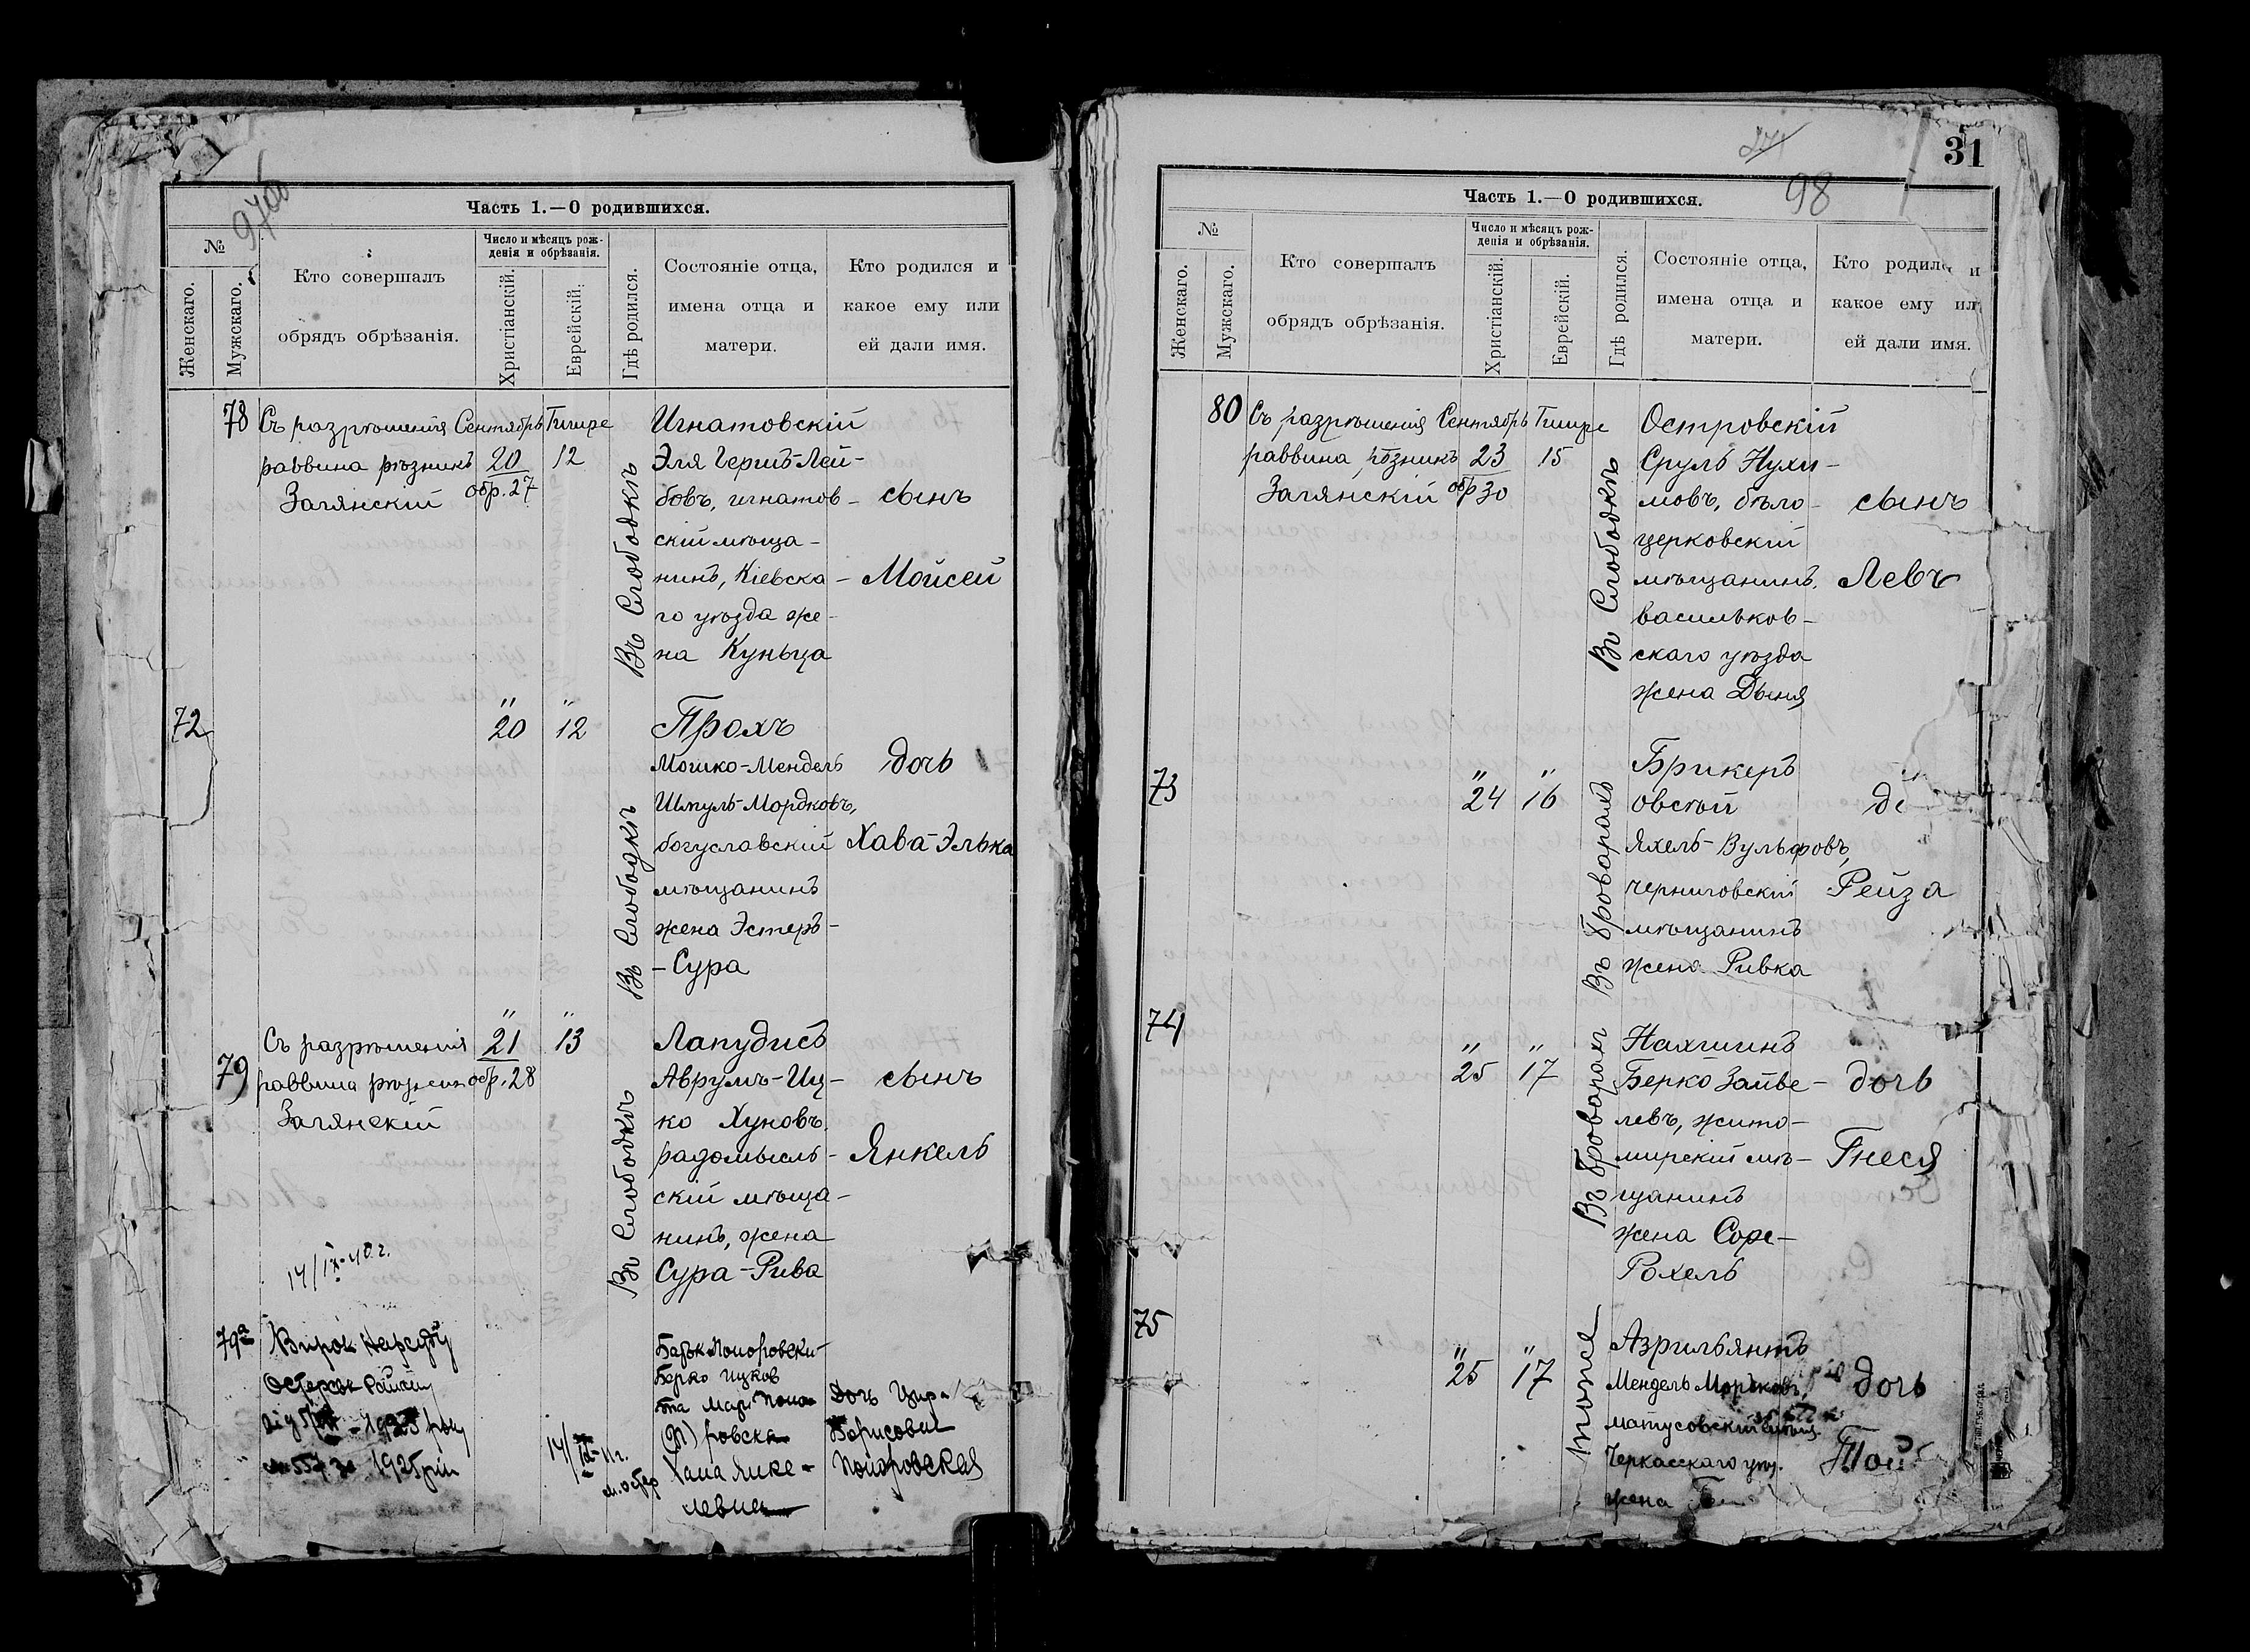 Часть 1.—О родившихся.
№
Женскаго.
Мужскаго.
Кто совершалъ
обрядъ обрѣзанія.
Число и мѣсяцъ рож-
денія и обрѣзанія.
Христіанскій.
Еврейскій.
Гдѣ родился.
Состояніе отца,
имена отца и
матери.
Кто родился и
какое ему или
ей дали имя.
78 Съ разрѣшенія Сентябрь Тишре
раввина рѣзникъ 20 12
Загянскій обр. 27
Въ Слободкѣ
Игнатовскій
Эля Гершъ-Лей-
бовъ, игнатов-
скій мѣща-
нинъ, Кіевска-
го уѣзда же-
на Куньца
сынъ
Мойсей
72 " 20 " 12
Въ Слободкѣ
Прохъ
Мошко-Мендель
Шмуль-Мордковъ,
богуславскій
мѣщанинъ
жена Эстеръ-
-Сура
дочь
Хава-Элька
79 Съ разрѣшенія " 21 " 13
раввина рѣзникъ обр. 28
Загянскій
Въ Слободкѣ
Лапудисъ
Аврумъ-Иц-
ко Хуновъ,
радомысль-
скій мѣща-
нинъ, жена
Сура-Рива
сынъ
Янкель
14/IX-40 г.
79а Вирок Нарсуду
1925 року
1925 рік
Берко Ицков
та
Хана Янке-
левна
Дочь
Борисовна
31
98
Часть 1.—О родившихся.
№
Женскаго.
Мужскаго.
Кто совершалъ
обрядъ обрѣзанія.
Число и мѣсяцъ рож-
денія и обрѣзанія.
Христіанскій.
Еврейскій.
Гдѣ родился.
Состояніе отца,
имена отца и
матери.
Кто родил и
какое ему ил
ей дали имя.
80 Съ разрѣшенія Сентябрь Тишре
раввина рѣзникъ 23 15
Загянскій обр 30
Въ Слободкѣ
Островскій
Сруль Нухи-
мовъ, бѣло-
церковскій
мѣщанинъ,
васильков-
скаго уѣзда
жена Двыня
сынъ
Левъ
73 " 24 " 16
Въ Броварахъ
Брикеръ
овскій
Яхель-Вульфовъ,
черниговскій
мѣщанинъ
жена Ривка
Рейза
74 " 25 " 17
Въ Броварахъ
Нахшинъ
Берко Зайве-
левъ, жито-
мирскій мѣ-
щанинъ
жена Соре-
Рохель
дочь
Гнеся
75 " 25 " 17
тоже
Азрильянтъ
Мендель Мордковъ,
матусовскій
Черкасскаго уѣз.
жена
дочь